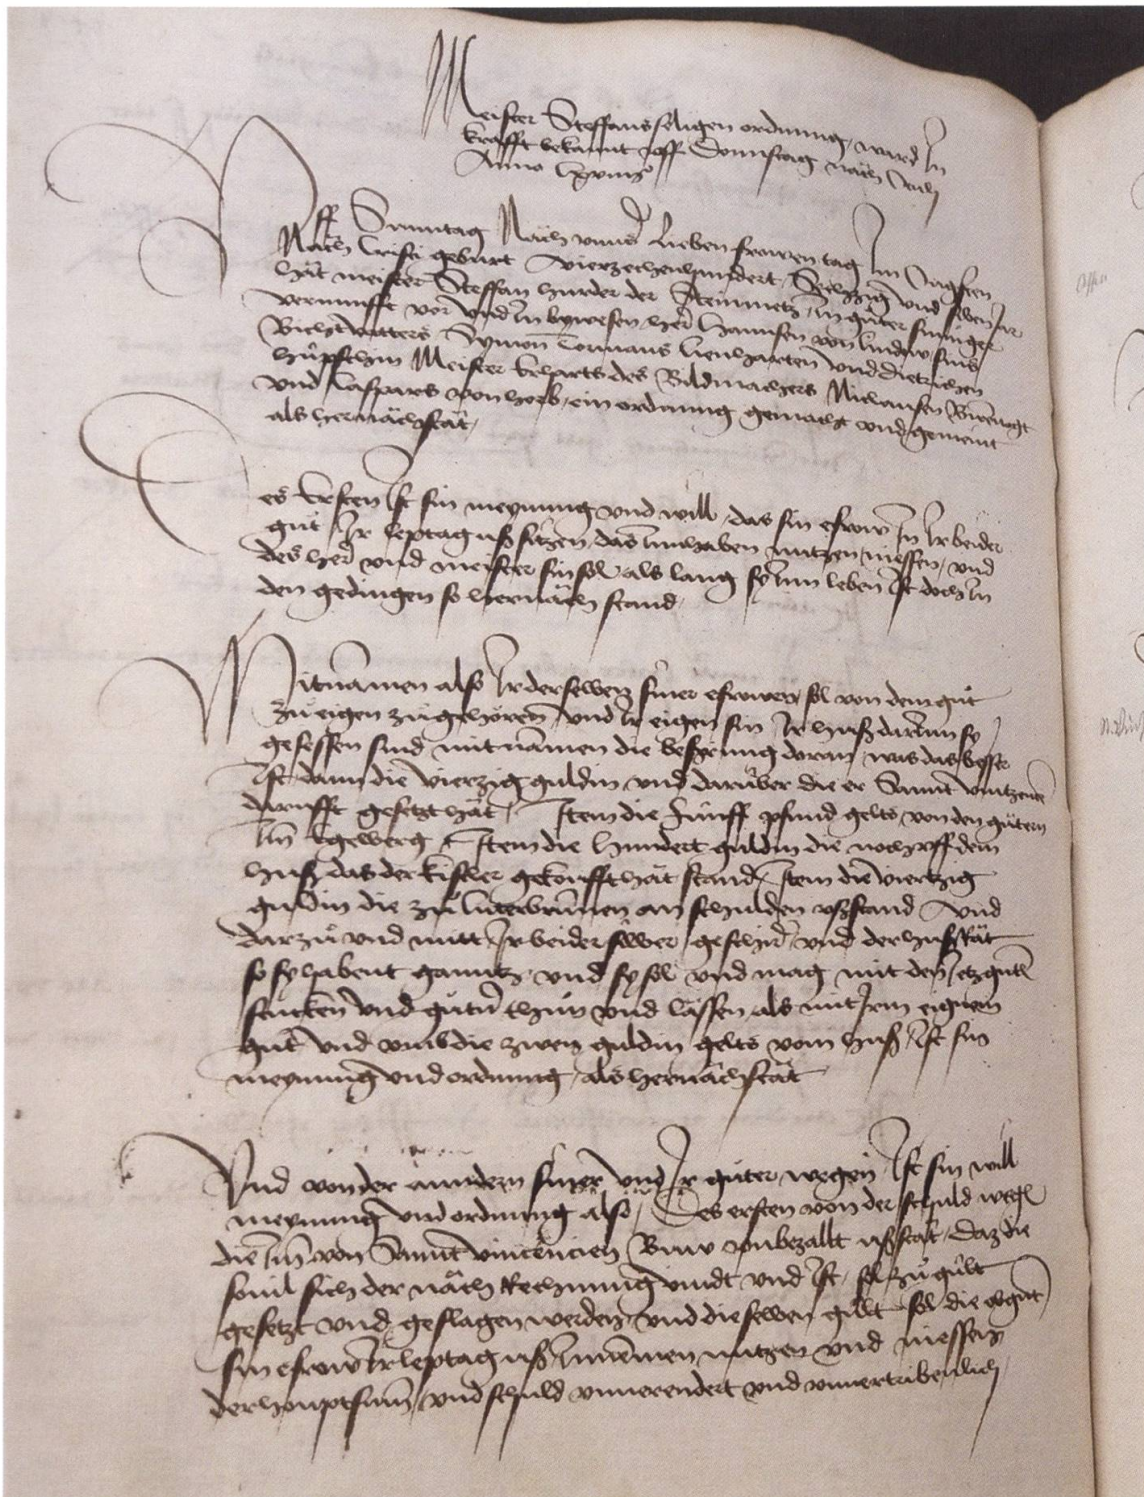 Meister Steffans seligen ordnung, ward In
krafft bekannt uff Donnstag nach
Anno
Uff Sunntag Nach unns Lieben frowen tag Im Ougsten
Nach Cristi geburt vierzechenhundert, Sechtzig und
hät meister Steffan hurder der Steinmetz, In guter sinniger
vernunfft vor und In bywesen, her Hannsen von lindow sins
Bichtvatters Symon lienharten und Dietrichen
hüpschin Meister Erharts des Bildmachers Niclausen
und Caspars von horb, ein ordnung gemacht und gemeint
als hernach stät,
es Ersten Ist sin meynung und will, das sin efrow In Ir beider
gut Ir leptag uß sitzen, das Innhaben nutzen niessen, und
des her und meister sin sol als lang sy Inn leben Ist doch In
den gedingen so hernach stand,
Mitnamen also Ir der selben siner efrowen sol von dem gut
zu eigen zugehören und Ir eigen sin Ir huß darInn sy
gesessen sind mitnamen die besserung doran was das besser
Ist, dann die vierzig guldin und darüber die er Sannt
daruff gesetzt hät, Item die fünff pfund gelts von den gütern
Im Item die hundert guldin die noch uff dem
huß das der kistler gekoufft hät stand, Item die viertzig
guldin die zu luterbrunnen an schulden usstand und
darzu und mitt Ir beider silber geschirr und der hußrät
so sy habent ganntz, und sy sol und mag mit den
stucken und gütern thun und lassen, als mit Irm eignem
gut und umb die zwen guldin gelts vom huß, Ist sin
meynung und ordnung, als hernach stät
Und von der anndern siner und Ir güter wegen Ist sin will
meynung und ordnung also, Des ersten von der schuld wegen
die Im von Sannt vincencien Buw unbezallt usstät, daz die
sovil sich der nach Rechnung vindt und Ist, sol zu gült
gesetzt und geslagen werden, und die selben gült sol die obgenant
sin efrow Ir leptag uß Innemen nutzen und niessen
der houptsumm und schuld unverendert und unvertribenlich,